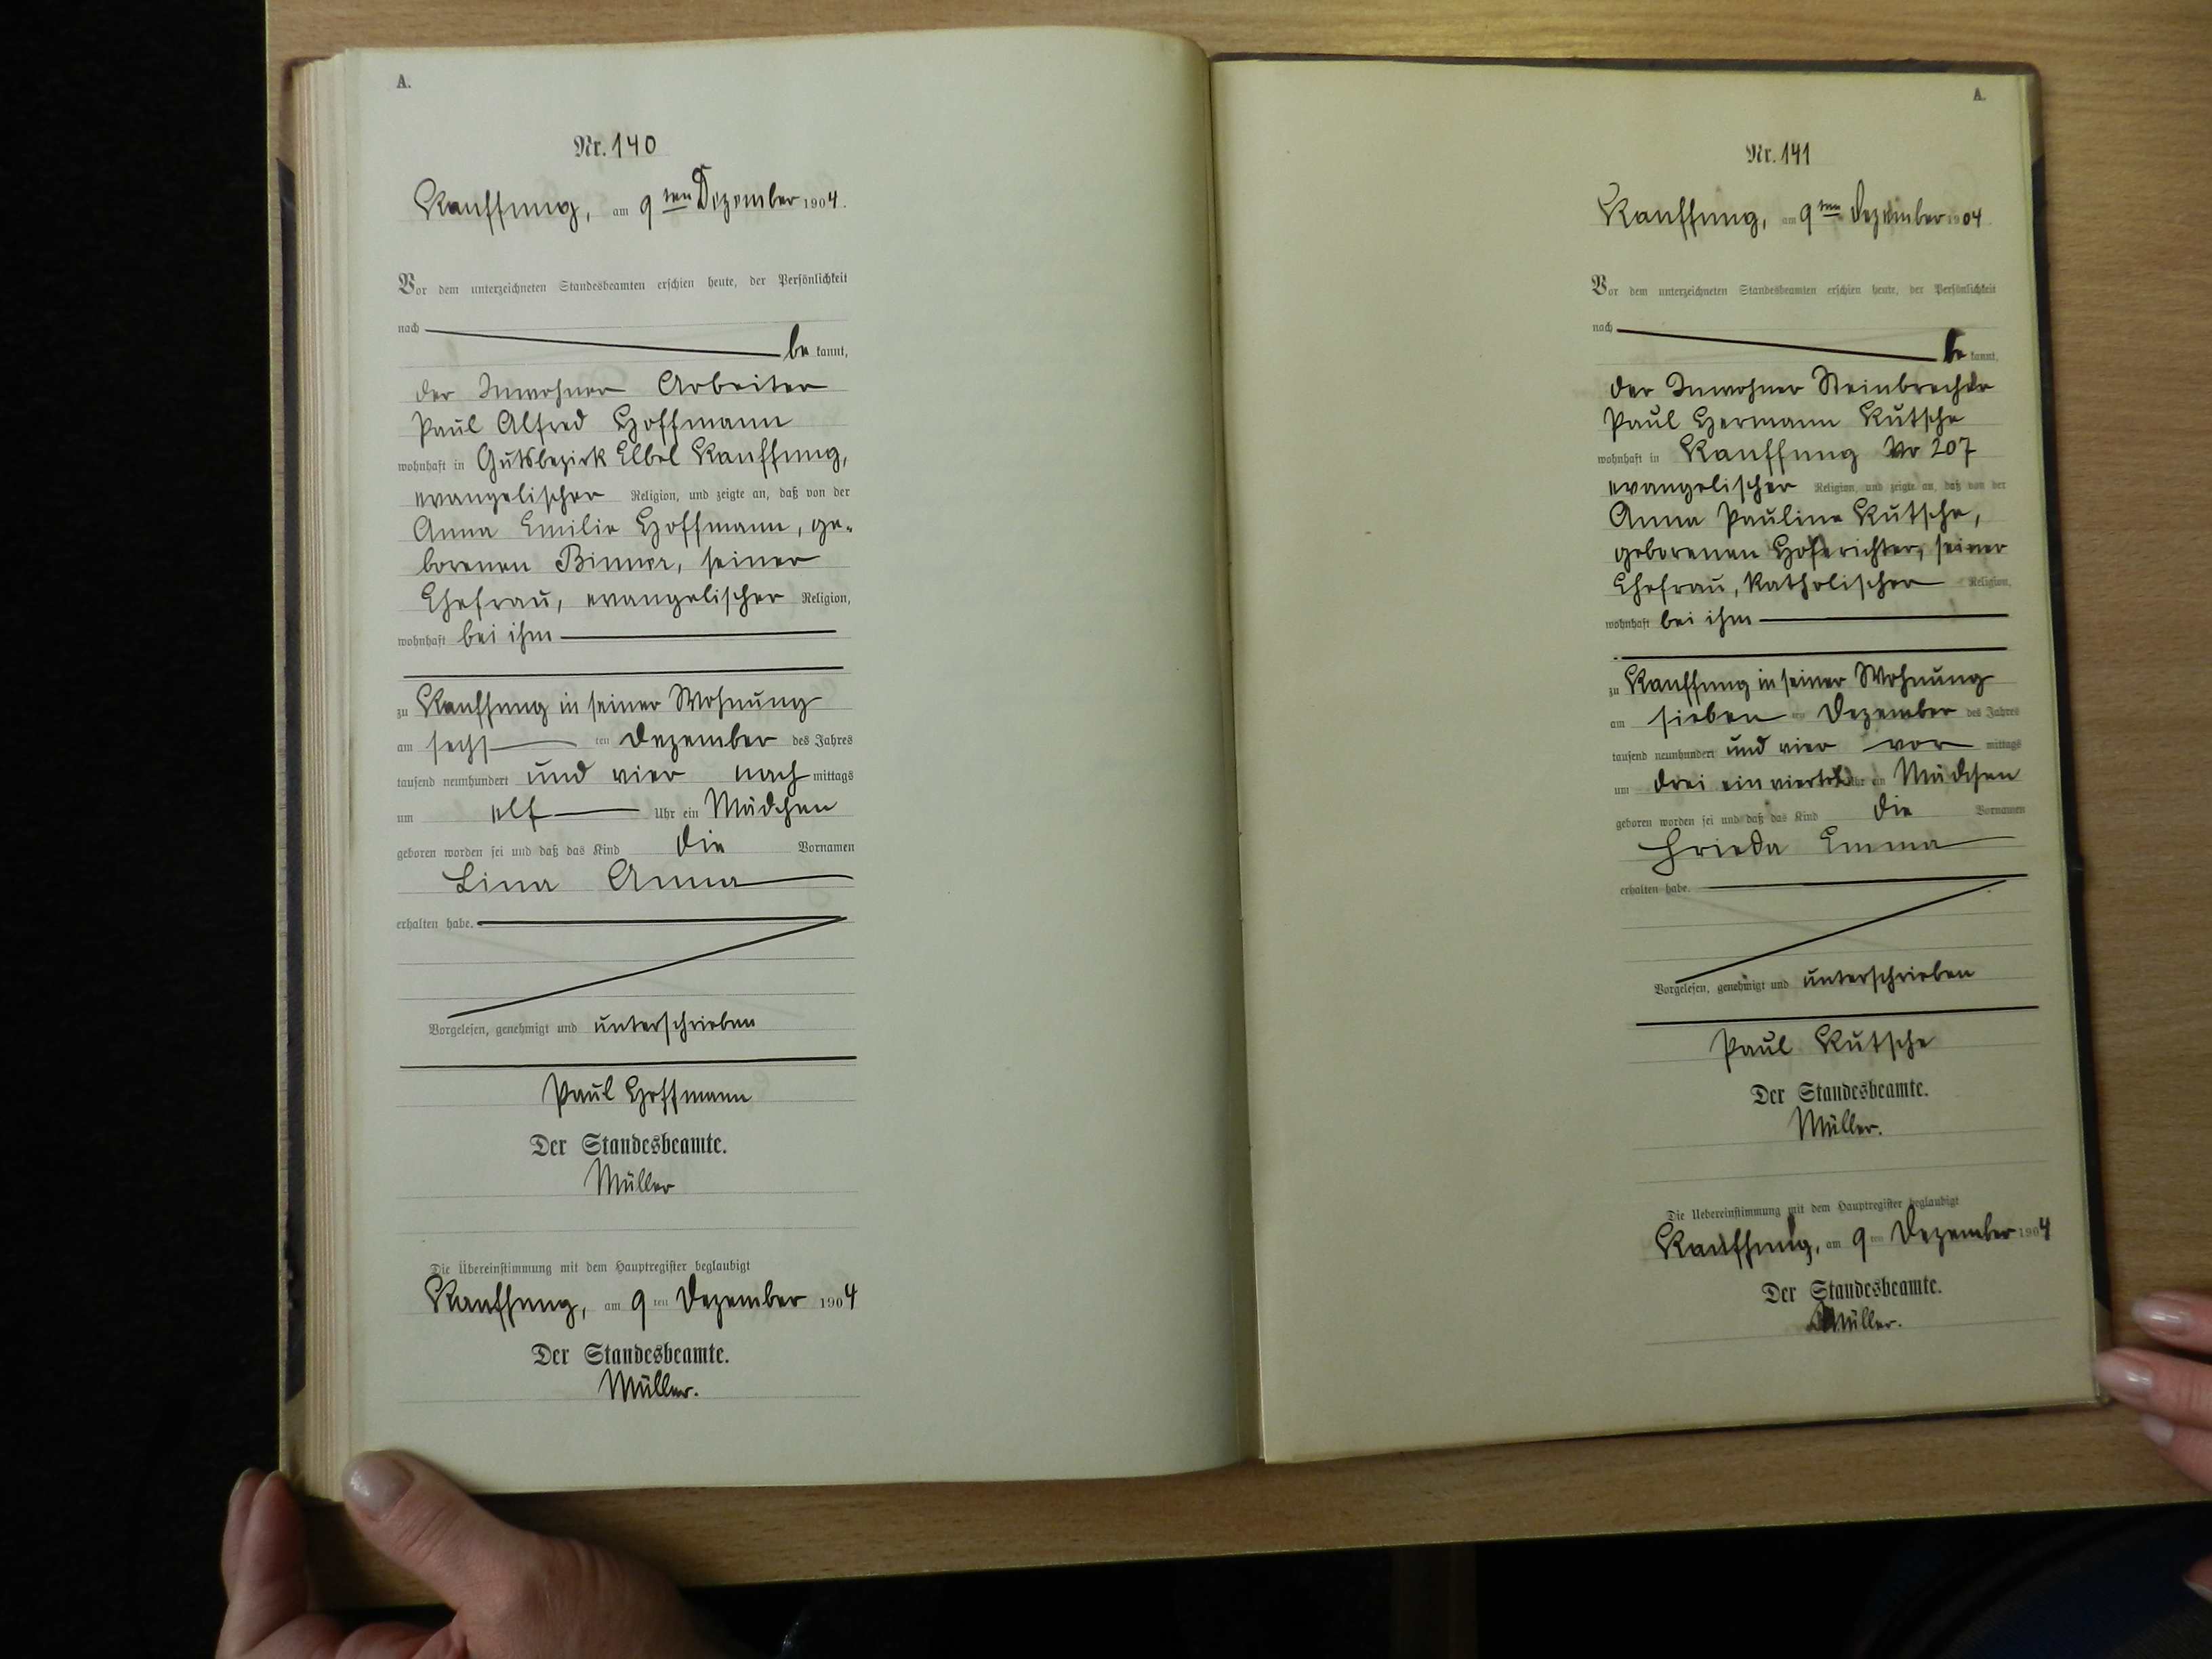 A.
Nr. 140
Kauffung, am 9ten Dezember 1904.
Vor dem unterzeichneten Standesbeamten erschien heute, der Persönlichkeit
nach
be kannt,
der Inwohner Arbeiter
Paul Alfred Hoffmann
wohnhaft in Gutsbezirk Elbel Kauffung,
evangelischer Religion, und zeigte an, daß von der
Anna Emilie Hoffmann, ge-
borenen Binner, seiner
Ehefrau, evangelischer Religion,
wohnhaft bei ihm
zu Kauffung in seiner Wohnung
am sechs ten Dezember des Jahres
tausend neunhundert und vier nach mittags
um elf Uhr ein Mädchen
geboren worden sei und daß das Kind die Vornamen
Lina Anna
erhalten habe.
Vorgelesen, genehmigt und unterschrieben
Paul Hoffmann
Der Standesbeamte.
Müller
Die Übereinstimmung mit dem Hauptregister beglaubigt
Kauffung, am 9 ten Dezember 1904
Der Standesbeamte.
Müller.
A.
Nr. 141
Kauffung, am 9ten Dezember 1904
Vor dem unterzeichneten Standesbeamten erschien heute, der Persönlichkeit
nach
be kannt,
der Inwohner Steinbrecher
Paul Hermann Kutsche
wohnhaft in Kauffung Nr 207
evangelischer Religion, und zeigte an, daß von der
Anna Pauline Kutsche,
geborenen Hoferichter, seiner
Ehefrau, katholischer Religion,
wohnhaft bei ihm
zu Kauffung in seiner Wohnung
am sieben ten Dezember des Jahres
tausend neunhundert und vier vor mittags
um drei ein viertel Uhr ein Mädchen
geboren worden sei und daß das Kind die Vornamen
Frieda Emma
erhalten habe.
Vorgelesen, genehmigt und unterschrieben
Paul Kutsche
Der Standesbeamte.
Müller.
Die Uebereinstimmung mit dem Hauptregister beglaubigt
Kauffung, am 9 ten Dezember 1904
Der Standesbeamte.
Müller.